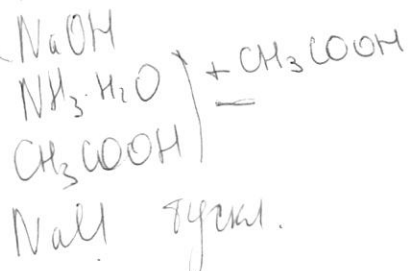 NaOH
NH₃·H₂O + CH₃COOH
CH₃COOH
NaCl тускл.